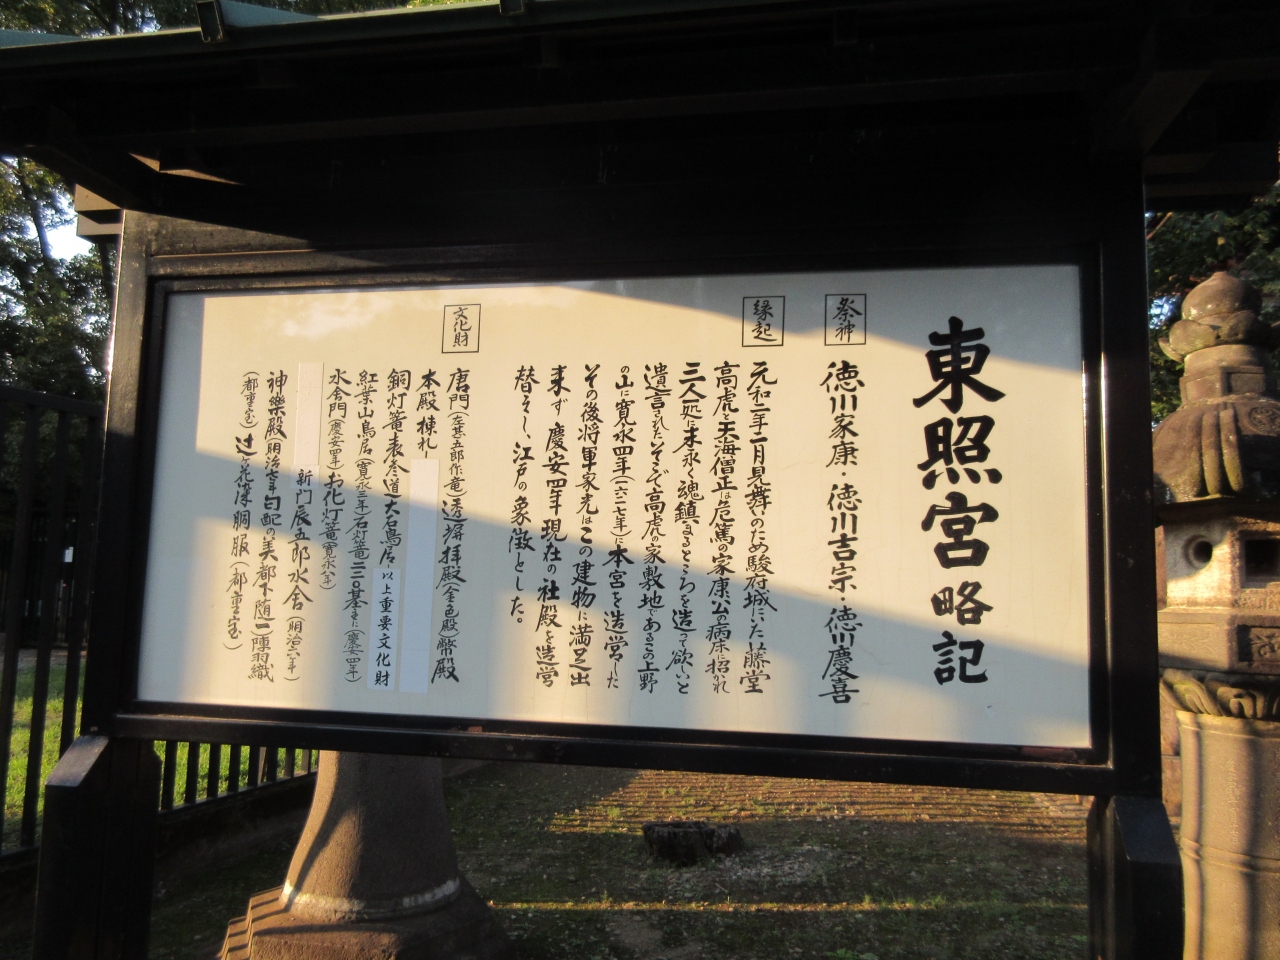 東照宮略記
祭神
徳川家康・徳川吉宗・徳川慶喜
縁起
元和二年二月見舞のため駿府城にいた藤堂
高虎と天海僧正は危篤の家康公の病床に招かれ
三人一処に末永く魂鎮まるところを造って欲いと
遺言されたそこで高虎の家敷地であるこの上野
の山に寛永四年(一六二七年)に本宮を造営した
その後将軍家光はこの建物に満足出
来ず慶安四年現在の社殿を造営
替えし、江戸の象徴とした。
文化財
唐門(左甚五郎作竜)透塀拝殿(金色殿)幣殿
本殿棟札
銅灯篭表参道大石鳥居 以上重要文化財
紅葉山鳥居(寛永三年)石灯篭二二〇基まに(慶安四年)
水舎門(慶安四年)お化灯篭(寛永八年)
新門辰五郎水舎(明治六年)
神樂殿(明治七年)勾配の美都下随一)陣羽織
(都重宝)辻ヶ花染胴服(都重宝)